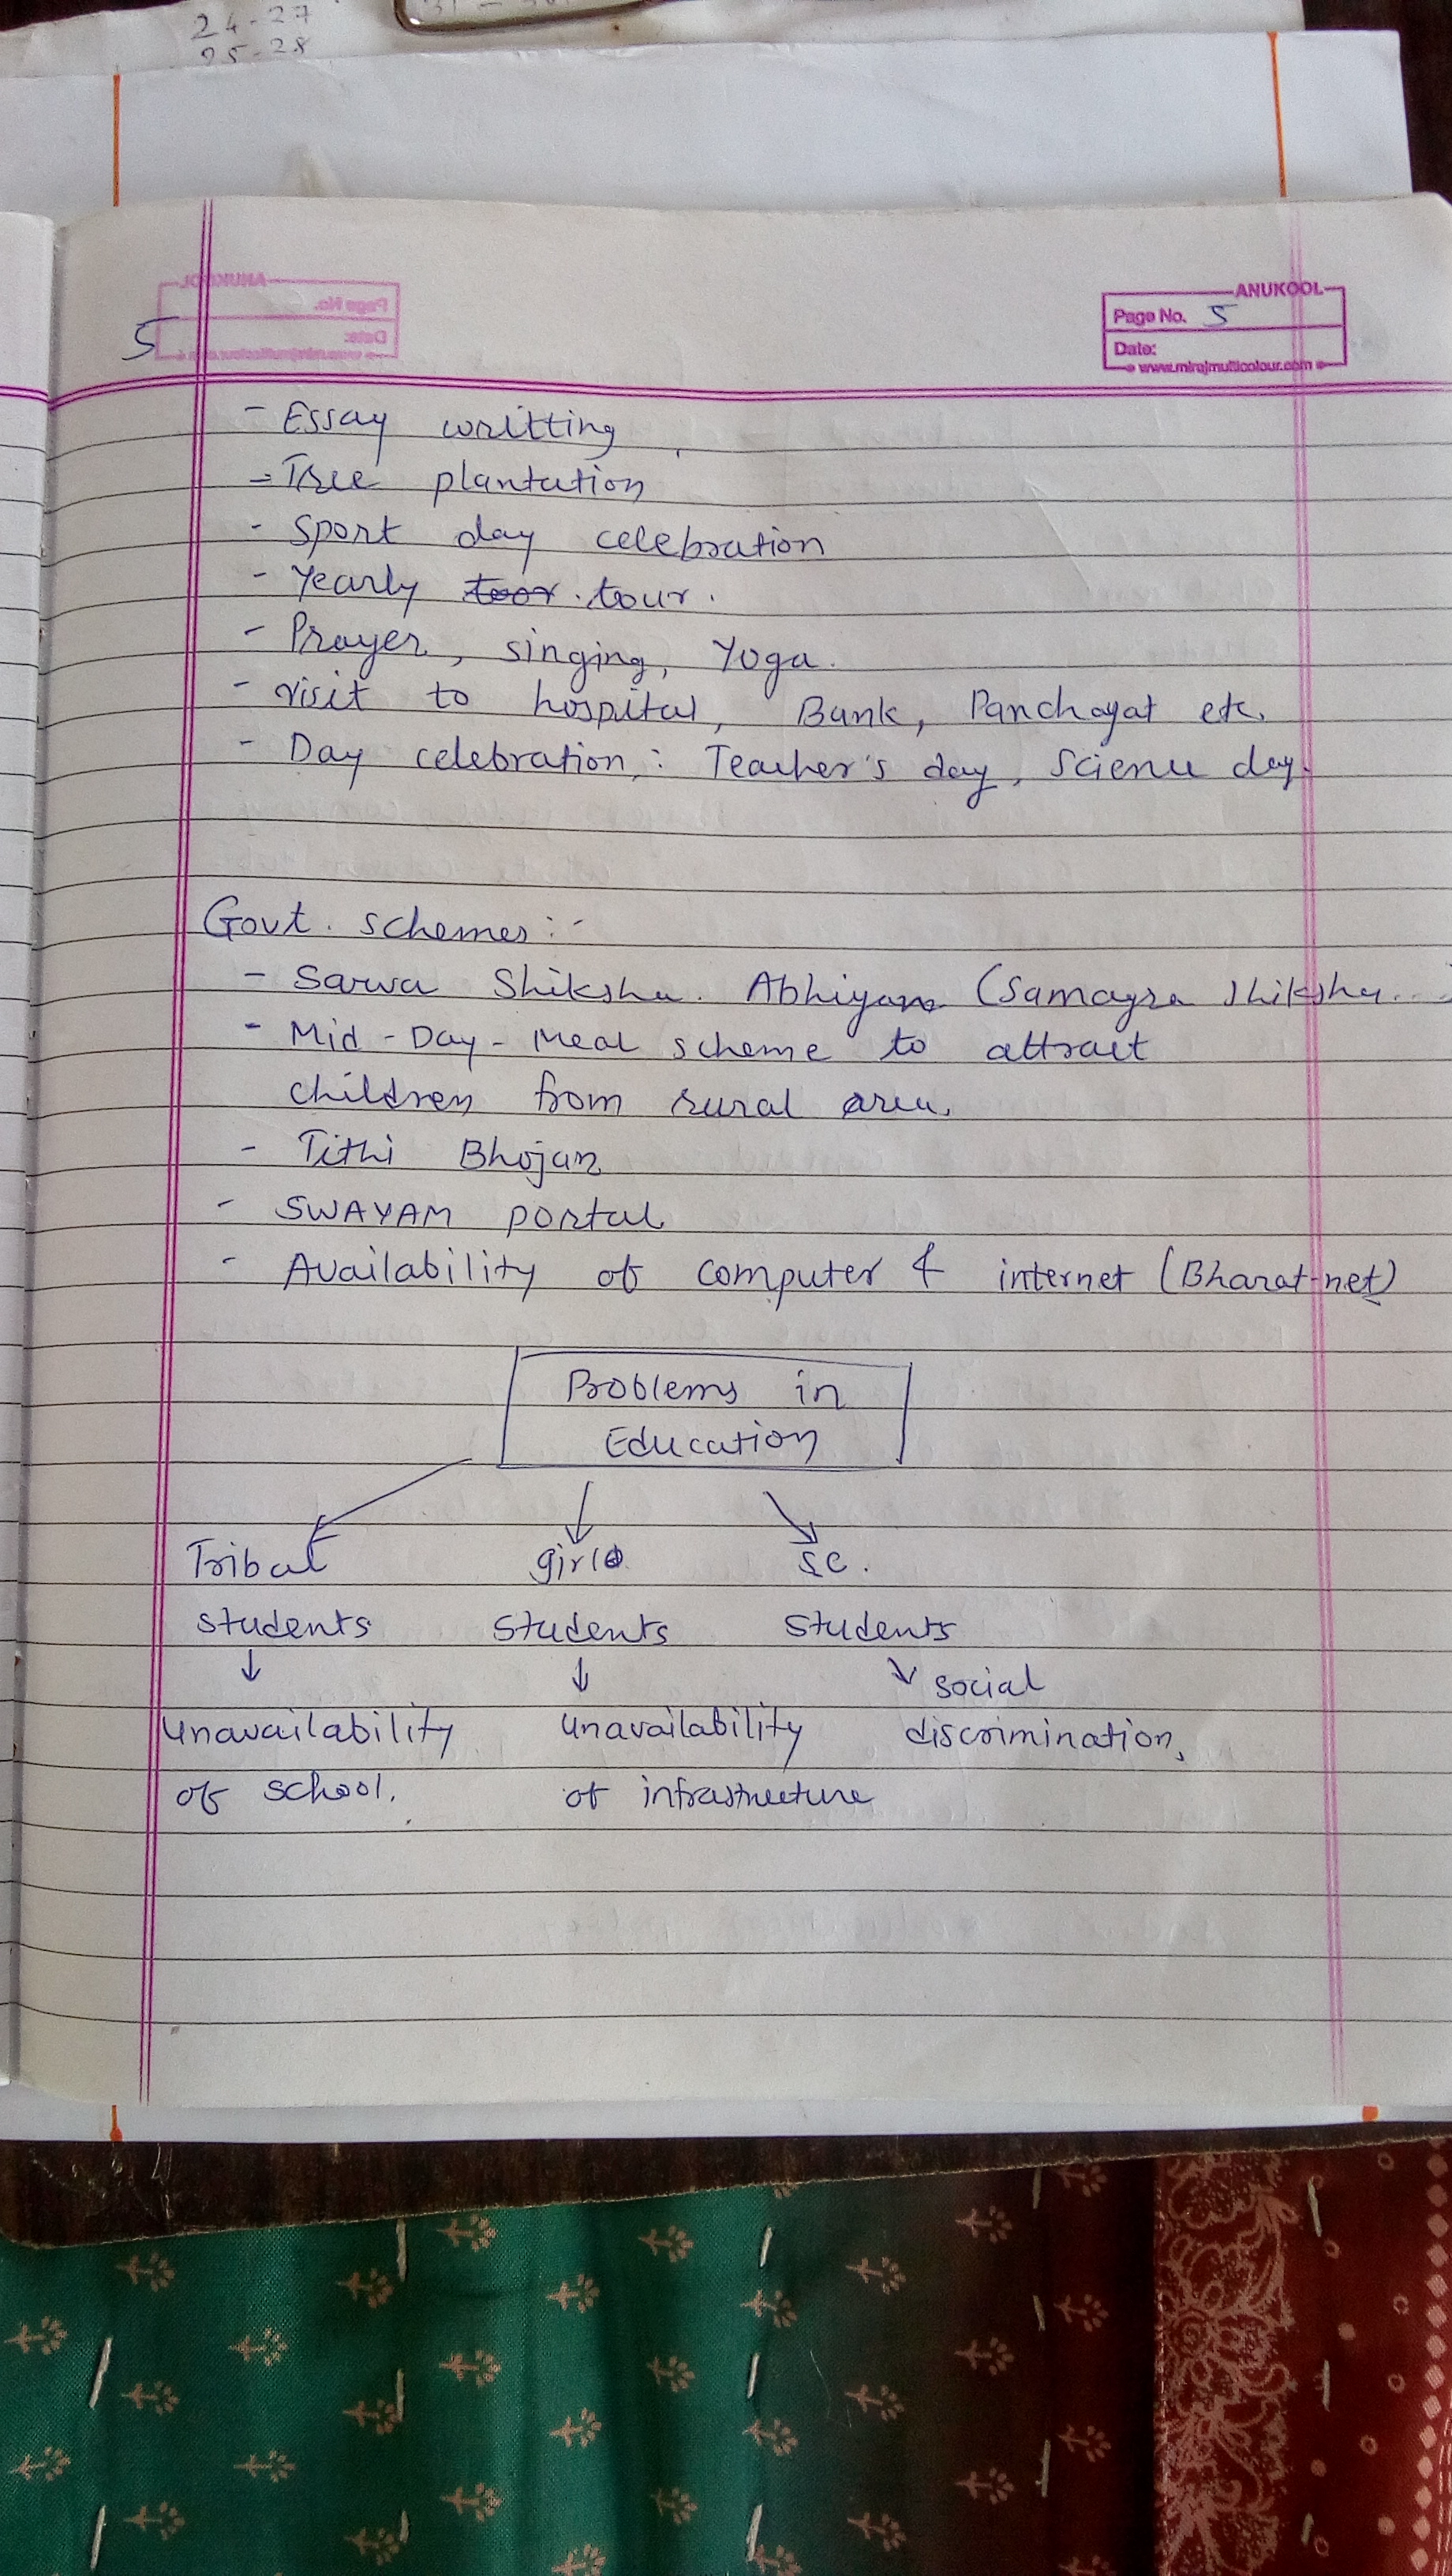 24-27
25-28
ANUKOOL
Page No. 5
Date:
www.mirajmulticolour.com
5
- Essay writting
- Tree plantation
- Sport day celebration
- Yearly toor tour.
- Prayer, singing, Yoga.
- visit to hospital, Bank, Panchayat etc.
- Day celebration: Teacher's day, Science day.
Govt. schemes:-
- Sarva Shiksha Abhiyan (Samagra Shiksha...)
- Mid-Day-Meal scheme to attract
children from rural area.
- Tithi Bhojan
- SWAYAM portal
- Availability of computer & internet (Bharat-net)
Problems in
Education
Tribal girl SC.
students students students
social
unavailability unavailability discrimination,
of school. of infrastructure